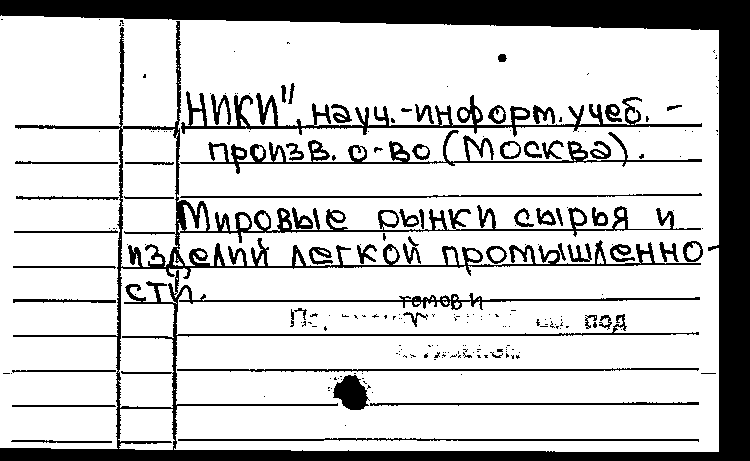 НИКИ", науч.-информ. учеб.-
произв. о-во (Москва).
Мировые рынки сырья и
изделий легкой промышленно-
сти.
томов и
под